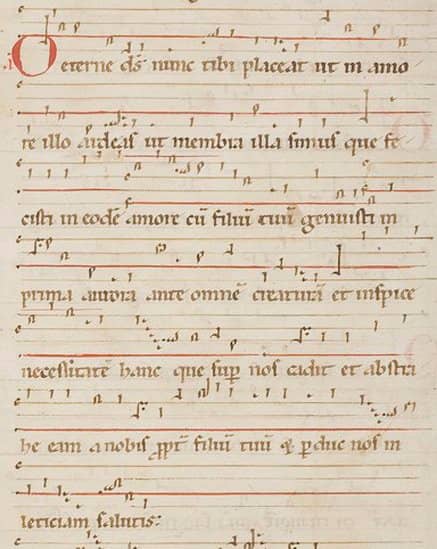 O eterne ds̄ nunc tibi placeat ut in amo
re illo ardeas ut membra illa simus que fe
cisti in eodē amore cū filiū tuū genuisti in
prima aurora ante omnē creaturā et inspice
necessitatē hanc que sup̱ nos cadit et abstra
he eam a nobis ꝓpt̄ filiū tuū ⁊ ꝑduc nos in
leticiam salutis.